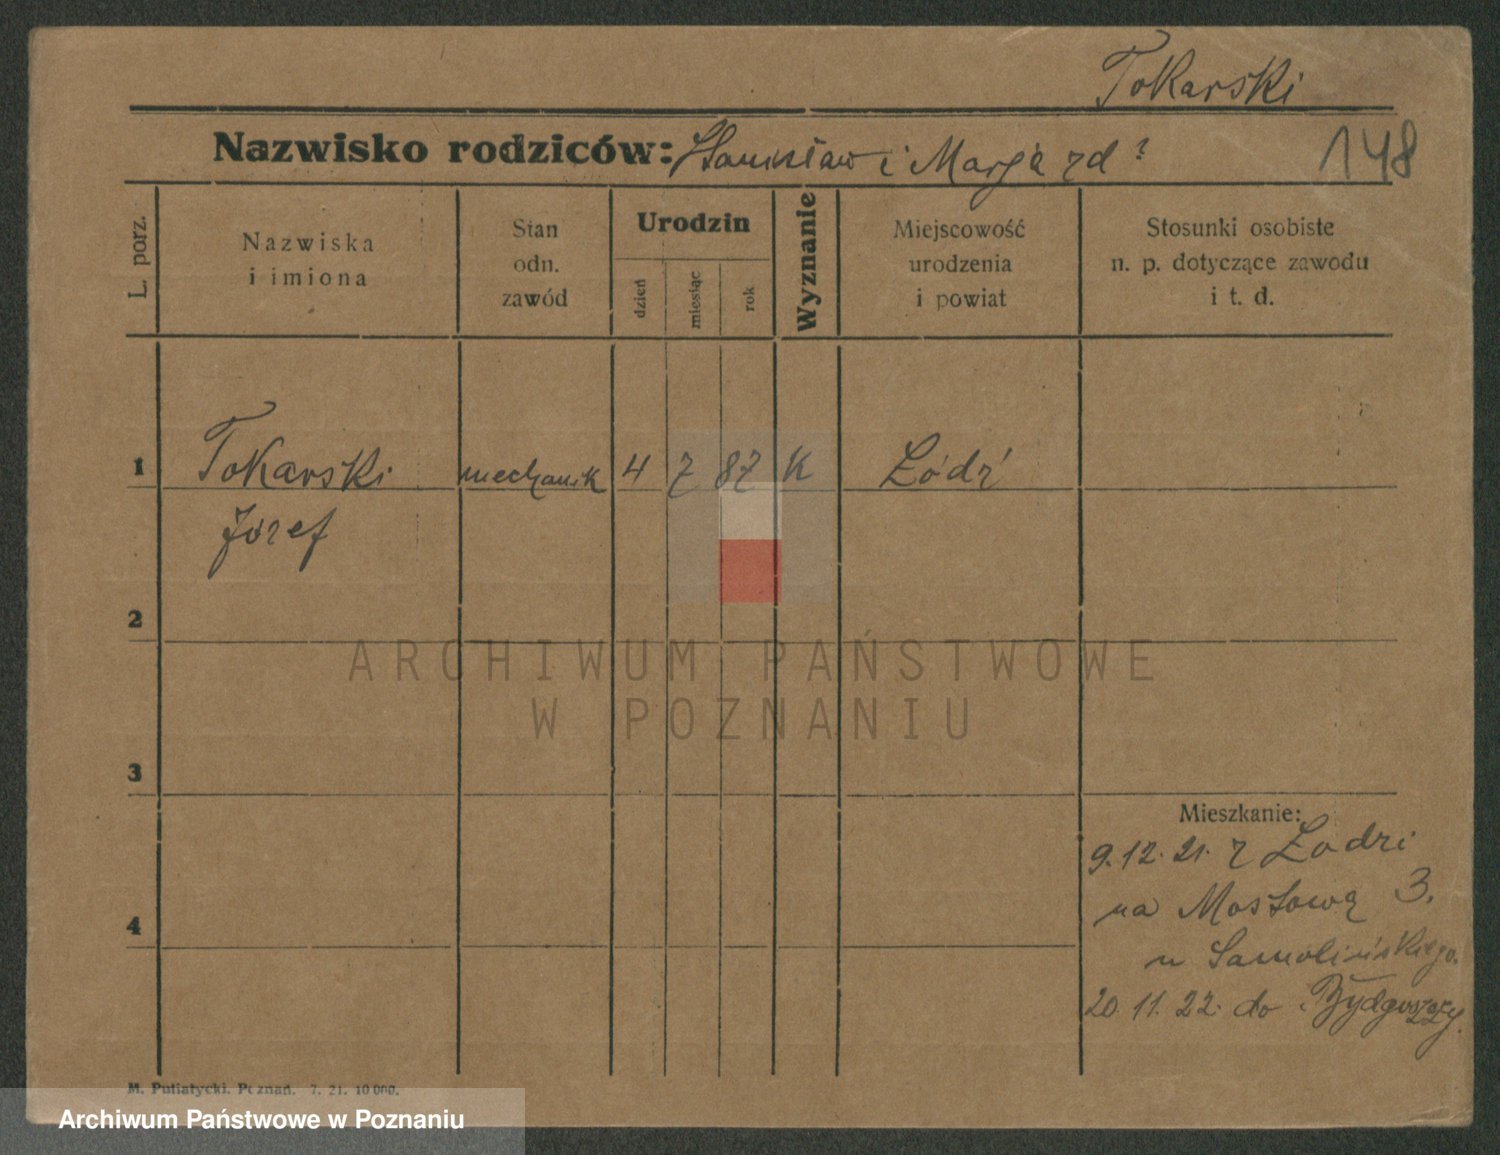 Tokarski
Nazwisko rodziców: Stanisław i Marja zd ?
148
L. porz.
Nazwiska
i imiona
Stan
odn.
zawód
Urodzin
dzień
miesiąc
rok
Wyznanie
Miejscowość
urodzenia
i powiat
Stosunki osobiste
n. p. dotyczące zawodu
i t. d.
1
Tokarski mechanik 4 7 87 K Łódź
Józef
2
3
4
Mieszkanie:
9.12.21. z Łodzi
na Mostową 3.
u Samolińskiego.
20.11.22. do Bydgoszczy.
M. Putiatycki. Poznań. 7. 21. 10 000.
ARCHIWUM PAŃSTWOWE
W POZNANIU
Archiwum Państwowe w Poznaniu